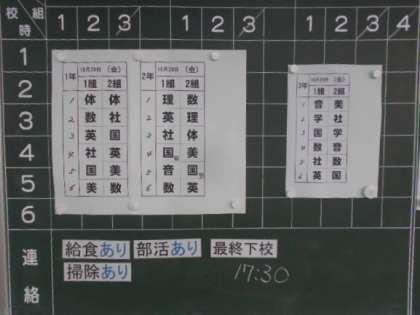 校時 組 1 2 3 1 2 3 1 2 3 4
1
2
3
4
5
6
1年 10月28日 (金)
1組 2組
1 体 体
2 数 社
3 英 国
4 社 英
5 国 美
6 美 数
2年 10月28日 (金)
1組 2組
1 理 数
2 英 理
3 社 体
4 国 美
5 音 国
6 数 英
3年 10月28日 (金)
1組 2組
1 音 美
2 学 社
3 国 学
4 数 音
5 社 数
6 英 国
連絡
給食あり 部活あり 最終下校
掃除あり 17:30